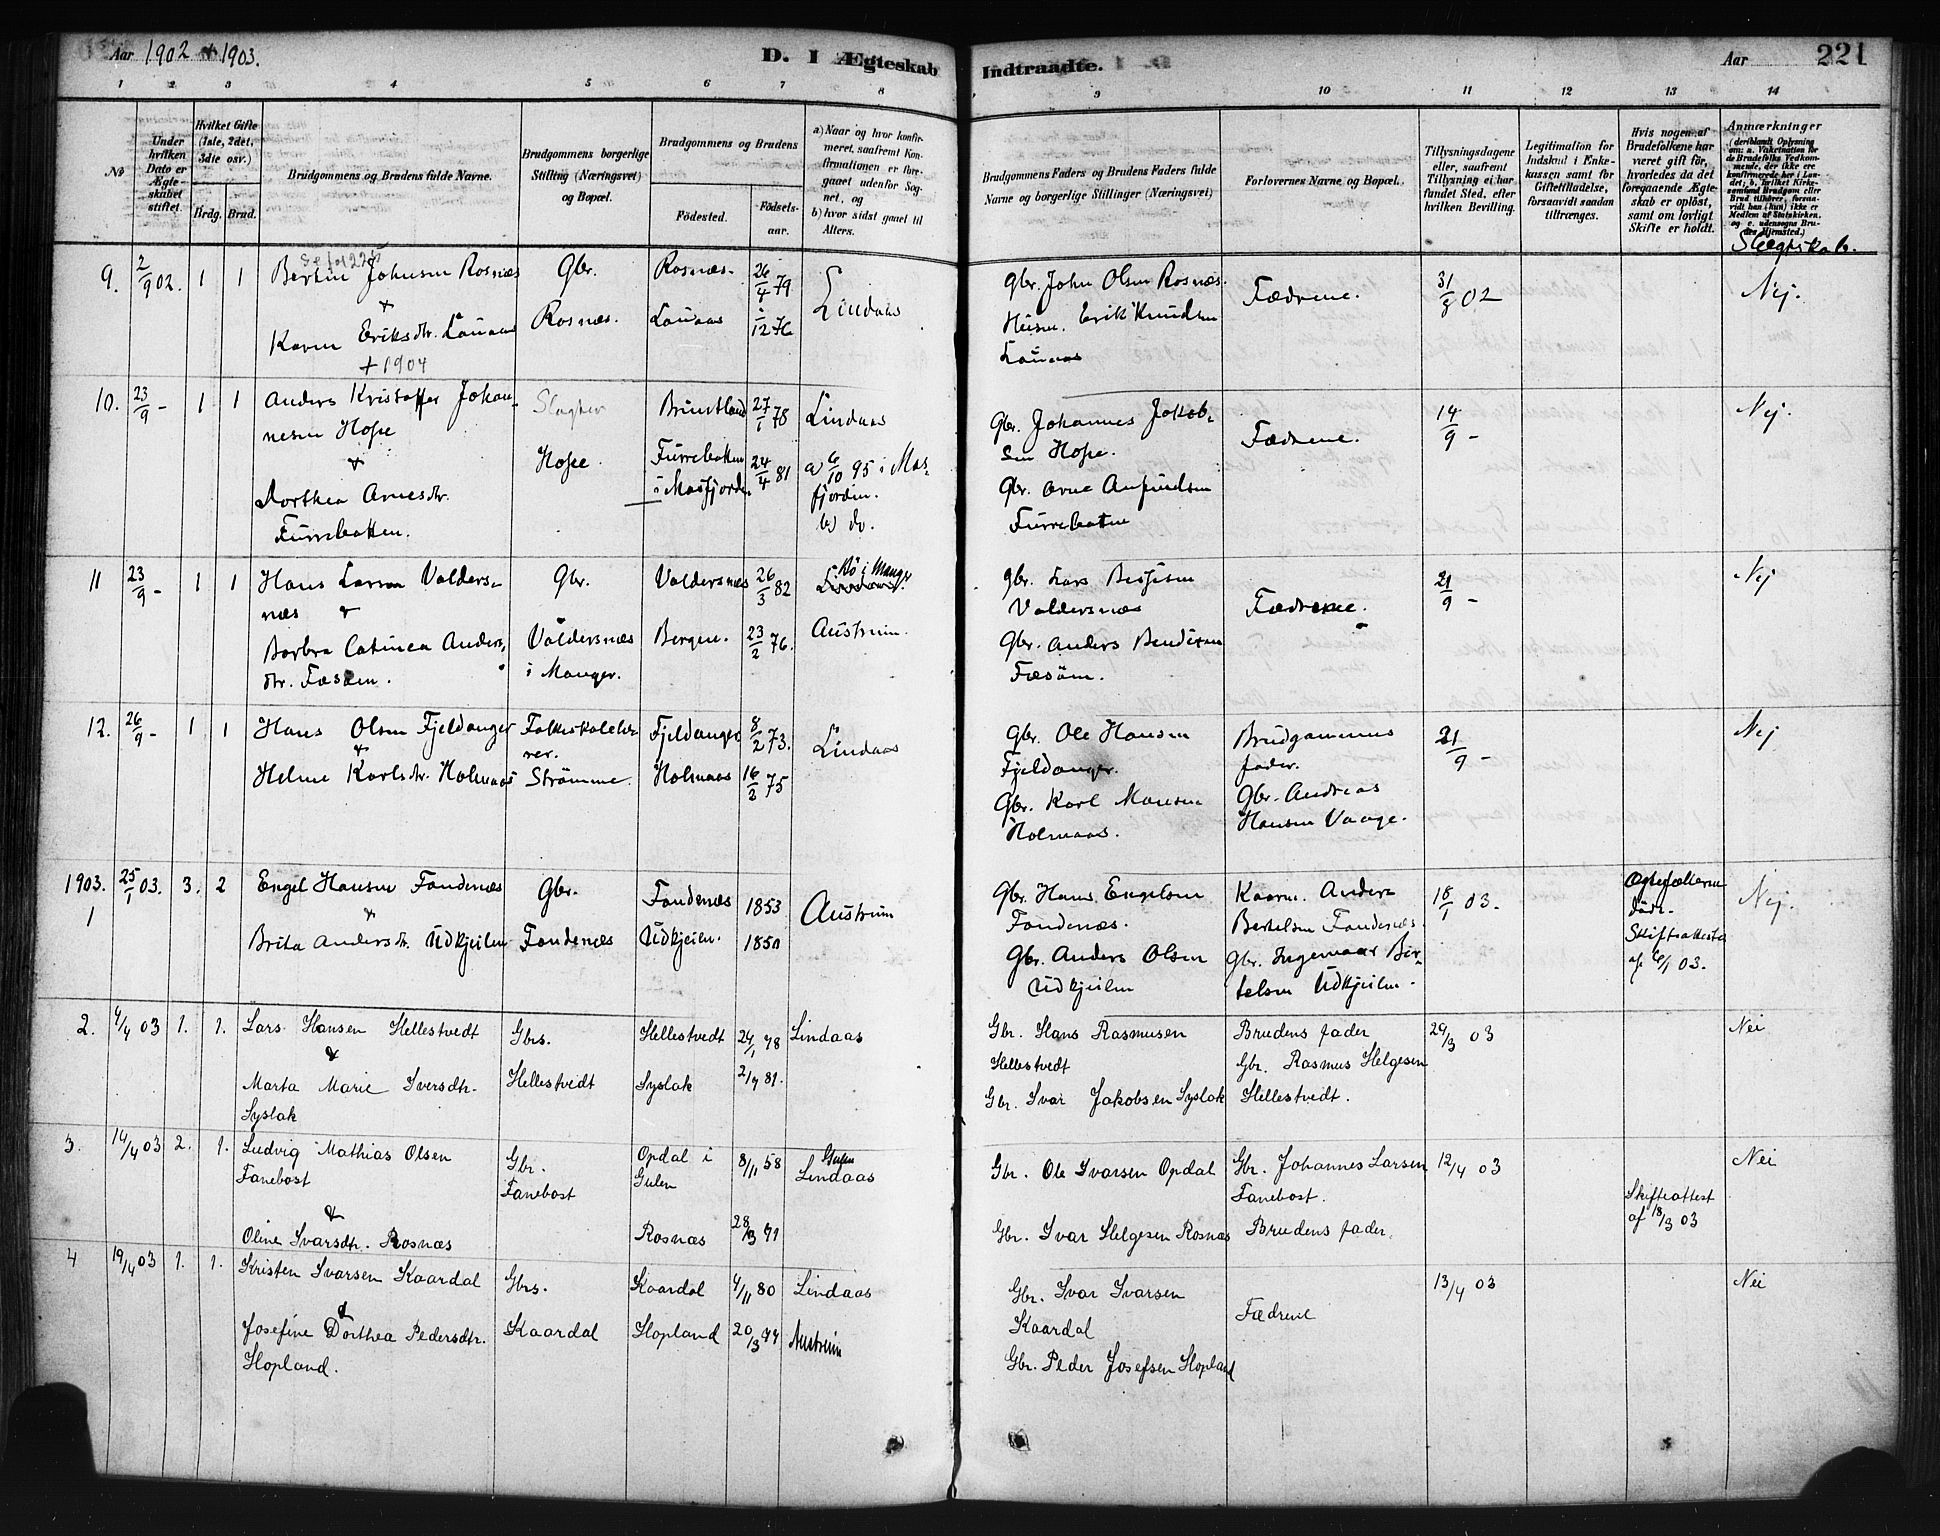 Aar 1902 & 1903.
D. I Ægteskab Indtraadte.
Aar 221
1 2 3 4 5 6 7 8 9 10 11 12 13 14
No
Under hvilken Dato er Ægteskabet stiftet.
Hvilket Gifte (1ste, 2det, 3die osv.)
Brdg. Brud.
Brudgommens og Brudens fulde Navne.
Brudgommens borgerlige Stilling (Næringsvei) og Bopæl.
Brudgommens og Brudens
Fødested. Fødselsaar.
a) Naar og hvor konfirmeret, saafremt Konfirmationen er foregaaet udenfor Sognet, og
b) hvor sidst gaaet til Alters.
Brudgommens Faders og Brudens Faders fulde Navne og borgerlige Stillinger (Næringsvei)
Forlovernes Navne og Bopæl.
Tillysningsdagene eller, saafremt Tillysning ei har fundet Sted, efter hvilken Bevilling.
Legitimation for Indskud i Enkekassen samt for Giftetilladelse, forsaavidt saadan tiltrænges.
Hvis nogen af Brudefolkene har været gift før, hvorledes da det foregaaende Ægteskab er opløst, samt om lovligt Skifte er holdt.
Anmærkninger
Slægtskab.
9. 2/9 02. 1 1 Bertin Johnsen Rosnæs Gbr. Rosnæs. 26/4 79 Lindaas Gbr. John Olsen Rosnæs. Fædrene. 31/8 02 Nej.
&
Karen Eriksdtr. Lauaas Rosnæs. Lauaas 1/12 76 Husm. Erik Knudsen
Lauaas
+ 1904
10. 23/9 - 1 1 Anders Kristoffer Johan- Slagter Brundtland 27/1 78 Lindaas Gbr. Johannes Jakob- Fædrene. 14/9 - Nej.
nesen Hope sen Hope.
&
Dorthea Arnesdtr. Hope. Furrebotten i Masfjorden 24/4 81 a) 6/10 95 i Mas- Gbr. Arne Anfindsen
Furrebotten. fjorden. b) do. Furrebotten
11 23/9 - 1 1 Hans Larsen Valders- Gbr. Valdersnæs 26/3 82 Bø i Manger Gbr. Lars Fædrene. 21/9 - Nej
næs & Valdersnæs
Barbra Catinca Anders- Valdersnæs Bergen. 23/2 76. Austreim. Gbr. Anders Bendixen
dtr. Fæsøen. i Manger. Fæsøen.
12. 26/9 - 1 1 Hans Olsen Fjeldanger Folkeskolelæ- Fjeldanger 8/2 73. Lindaas Gbr. Ole Hansen Brudgommens 21/9 - Nej
& rer. Fjeldanger. fader.
Helene Karlsdtr. Holmaas Strömme. Holmaas 16/2 75 Gbr. Karl Monsen Gbr. Andreas
Holmaas. Hansen Vaage.
1903. 1 25/1 03. 3. 2 Engel Hansen Fondenæs Gbr. Fondenæs 1853 Austreim Gbr. Hans Engelsen Kaarm. Anders 18/1 03. Ægtefællerne Nej.
& Fondenæs. Bertelsen Fondenæs. døde.
Brita Andersdtr. Udkjeilen Fondenæs Udkjeilen. 1850 Gbr. Anders Olsen Gbr. Ingemaar Ber- Skifteattest
Udkjeilen telsen Udkjeilen. af 6/1 03.
2. 4/4 03 1. 1. Lars Hansen Hellestvedt Gbrs. Hellestvedt 24/1 78 Lindaas Gbr. Hans Rasmusen Brudens fader 29/3 03 Nei
& Hellestvedt Gbr. Rasmus Helgesen
Marta Marie Iversdtr. Hellestvedt Syslak 2/7 81. Gbr. Ivar Jakobsen Syslak Hellestvedt.
Syslak
3. 14/4 03 2. 1. Ludvig Mathias Olsen Gbr. Opdal i 8/11 58 Gulen Gbr. Ole Ivarsen Opdal Gbr. Johannes Larsen 12/4 03 Nei
Fanebost Fanebost Gulen Lindaas Fanebost. Skifteattest
& af 18/3 03
Oline Ivarsdtr. Rosnæs Rosnæs 28/3 71 Gbr. Ivar Helgesen Rosnæs Brudens fader.
4 19/4 03 1. 1. Kristen Ivarsen Kaardal Gbrs. Kaardal 4/11 80 Lindaas Gbr. Ivar Ivarsen Fædrene 13/4 03 Nei
& Kaardal
Josefine Dorthea Pedersdtr. Kaardal Hopland 20/3 77 Austreim Gbr. Peder Josefsen Hopland
Hopland.